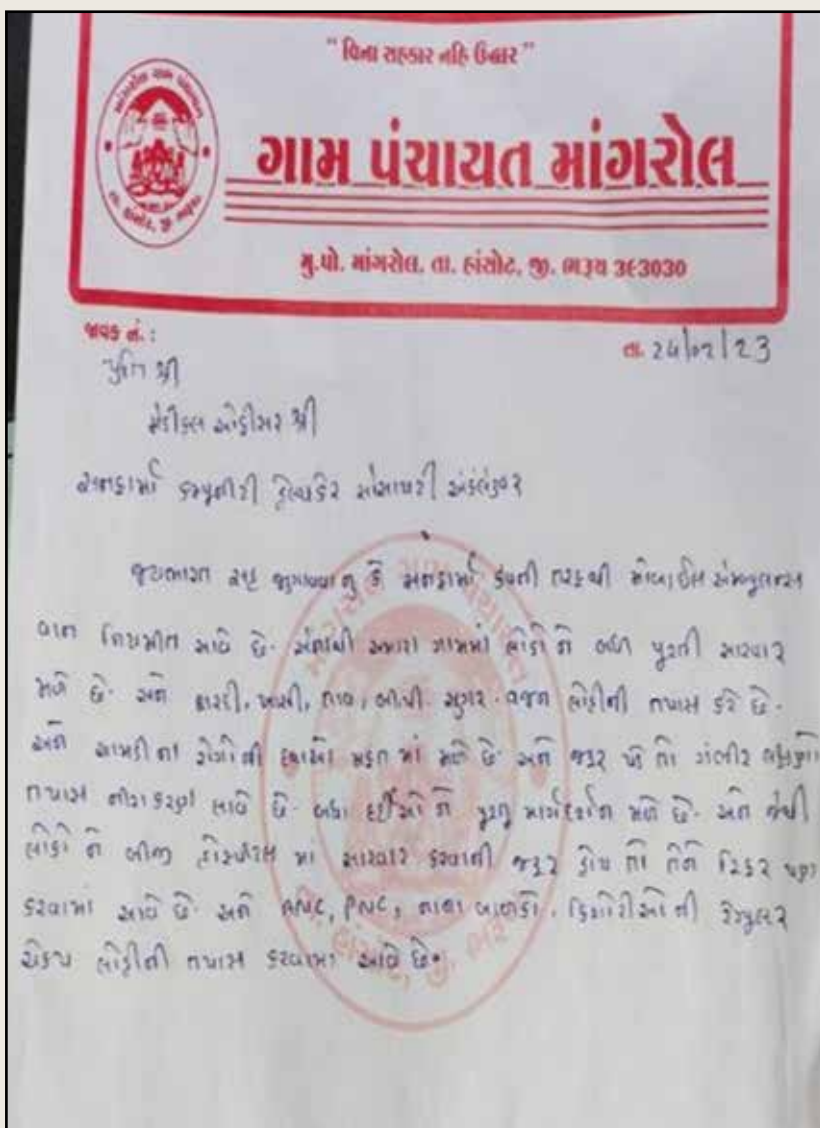 " વિના સહકાર નહિ ઉદ્ધાર "
ગામ પંચાયત માંગરોલ
મુ.પો. માંગરોલ, તા. હાંસોટ, જી. ભરૂચ 393030
જાવક નં. :
તા.
પ્રતિ શ્રી
મેડીકલ ઓફીસર શ્રી
કમ્યુનીટી હેલ્થકેર સોસાયટી અંકલેશ્વર
જયભારત સહ જણાવવાનું કે કંપની તરફથી મોબાઈલ એમ્બ્યુલન્સ
વાન નિયમીત આવે છે. અમારા ગામમાં લોકો ને પુરતી સારવાર
મળે છે. અને શરદી, ખાંસી, તાવ, બીપી સુગર વજન લોહીની તપાસ કરે છે.
અને ચામડી ના રોગોની દવાઓ મફત માં મળે છે. અને જરૂર પડે તો ગંભીર
તપાસ લાવે છે. બધા દર્દીઓ ને પુરતુ માર્ગદર્શન મળે છે. અને જેથી
લોકો ને બીજી હોસ્પીટલ માં સારવાર કરવાની જરૂર હોય તો તેને રિફર પણ
કરવામાં આવે છે. અને ANC, PNC, નાના બાળકો, કિશોરીઓ ની રેગ્યુલર
ચેકપ લોહીની તપાસ કરવામાં આવે છે.